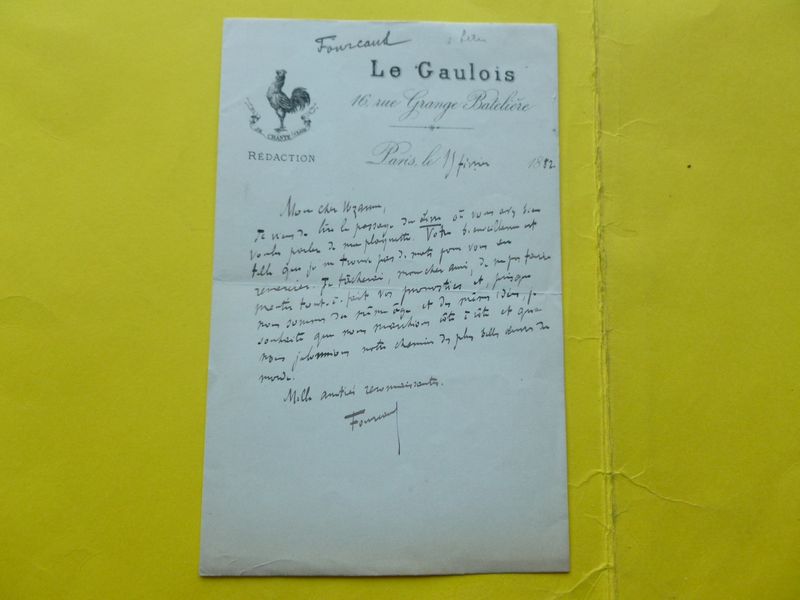 Fourcaud
Le Gaulois
16, rue Grange Batelière
RÉDACTION
Paris, le 15 février 1882
Mon cher Uzanne,
Je viens de lire le passage du où vous avez bien
voulu parler de ma plaquette. Votre bienveillance est
telle que je ne trouve pas de mots pour vous en
remercier. Je tâcherai, mon cher ami, de ne pas faire
mentir tout-à-fait vos pronostics et, puisque
nous sommes du même âge et des mêmes idées, je
souhaite que nous marchions côte à côte et que
nous jalonnions notre chemin des plus belles du
monde.
Mille amitiés reconnaissantes.
Fourcaud